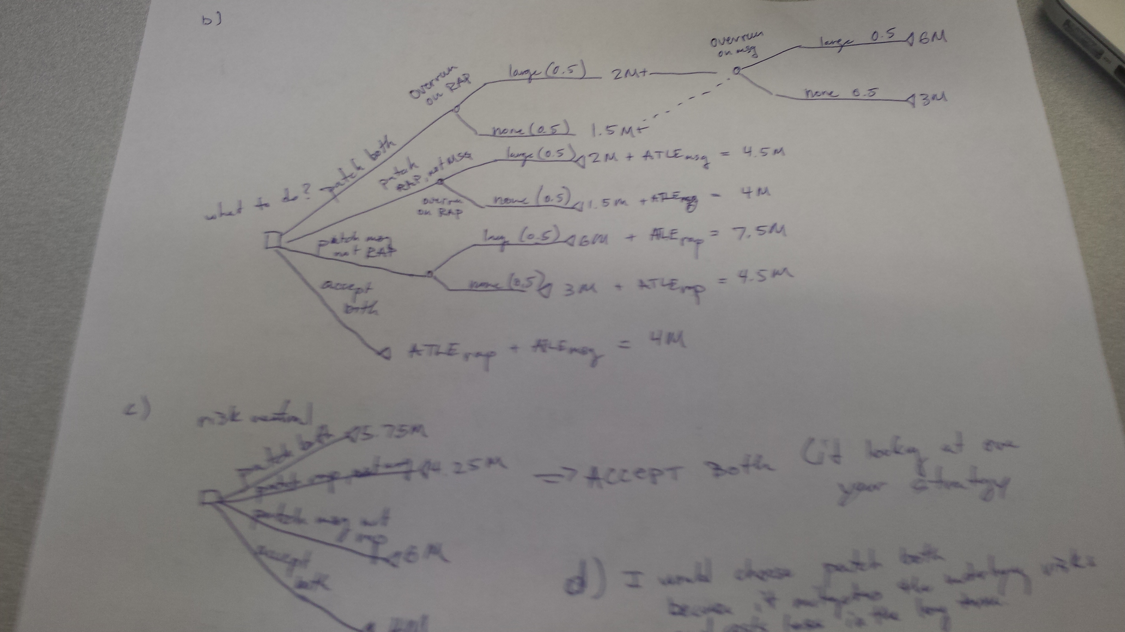 b)
overrun on msg
large 0.5 6M
none 0.5 3M
overrun on RAP
large (0.5) 2M+
none (0.5) 1.5M+
what to do?
patch both
patch RAP, not MSG
overrun on RAP
large (0.5) 2M + ATLE msg = 4.5M
none (0.5) 1.5M + ATLE msg = 4M
patch msg not RAP
large (0.5) 6M + ALE rap = 7.5M
none (0.5) 3M + ATLE rap = 4.5M
accept both
ATLE rap + ATLE msg = 4M
c)
risk neutral
patch both 5.75M
patch rap, not msg 4.25M
patch msg not rap 6M
accept both
=> ACCEPT BOTH (if looking at one
year strategy
d) I would choose patch both
because it mitigates the risks
in the long